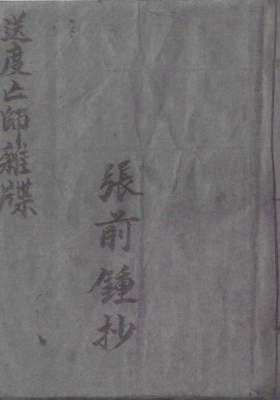 送度亡師雜牒
張前鍾抄